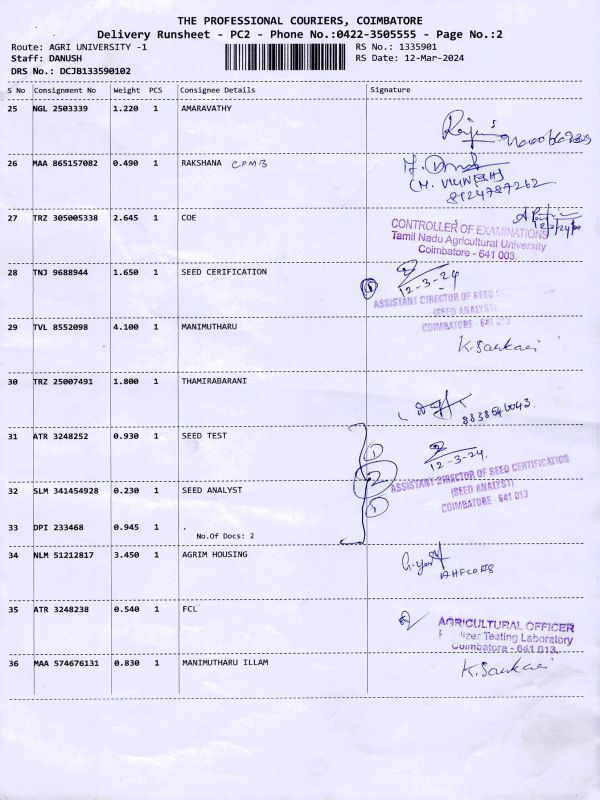 THE PROFESSIONAL COURIERS, COIMBATORE
Delivery Runsheet - PC2 - Phone No.:0422-3505555 - Page No.:2
Route: AGRI UNIVERSITY -1
Staff: DANUSH
DRS No.: DCJB133590102
RS No.: 1335901
RS Date: 12-Mar-2024
S No Consignment No Weight PCS Consignee Details Signature
25 NGL 2503339 1.220 1 AMARAVATHY
26 MAA 865157082 0.490 1 RAKSHANA CPMB
8124787262
27 TRZ 305005338 2.645 1 COE
CONTROLLER OF EXAMINATIONS
Tamil Nadu Agricultural University
Coimbatore - 641 003.
28 TNJ 9688944 1.650 1 SEED CERIFICATION
12-3-24
ASSISTANT DIRECTOR OF SEED
(SEED ANALYST)
COIMBATORE - 641 013
29 TVL 8552098 4.100 1 MANIMUTHARU
K. Sankari
30 TRZ 25007491 1.800 1 THAMIRABARANI
31 ATR 3248252 0.930 1 SEED TEST
1
12-3-24.
ASSISTANT DIRECTOR OF SEED CERTIFICATION
(SEED ANALYST)
COIMBATORE - 641 013
32 SLM 341454928 0.230 1 SEED ANALYST
2
33 DPI 233468 0.945 1 .
No.Of Docs: 2
34 NLM 51212817 3.450 1 AGRIM HOUSING
35 ATR 3248238 0.540 1 FCL
AGRICULTURAL OFFICER
Testing Laboratory
Coimbatore - 641 013.
36 MAA 574676131 0.830 1 MANIMUTHARU ILLAM
K. Sankari